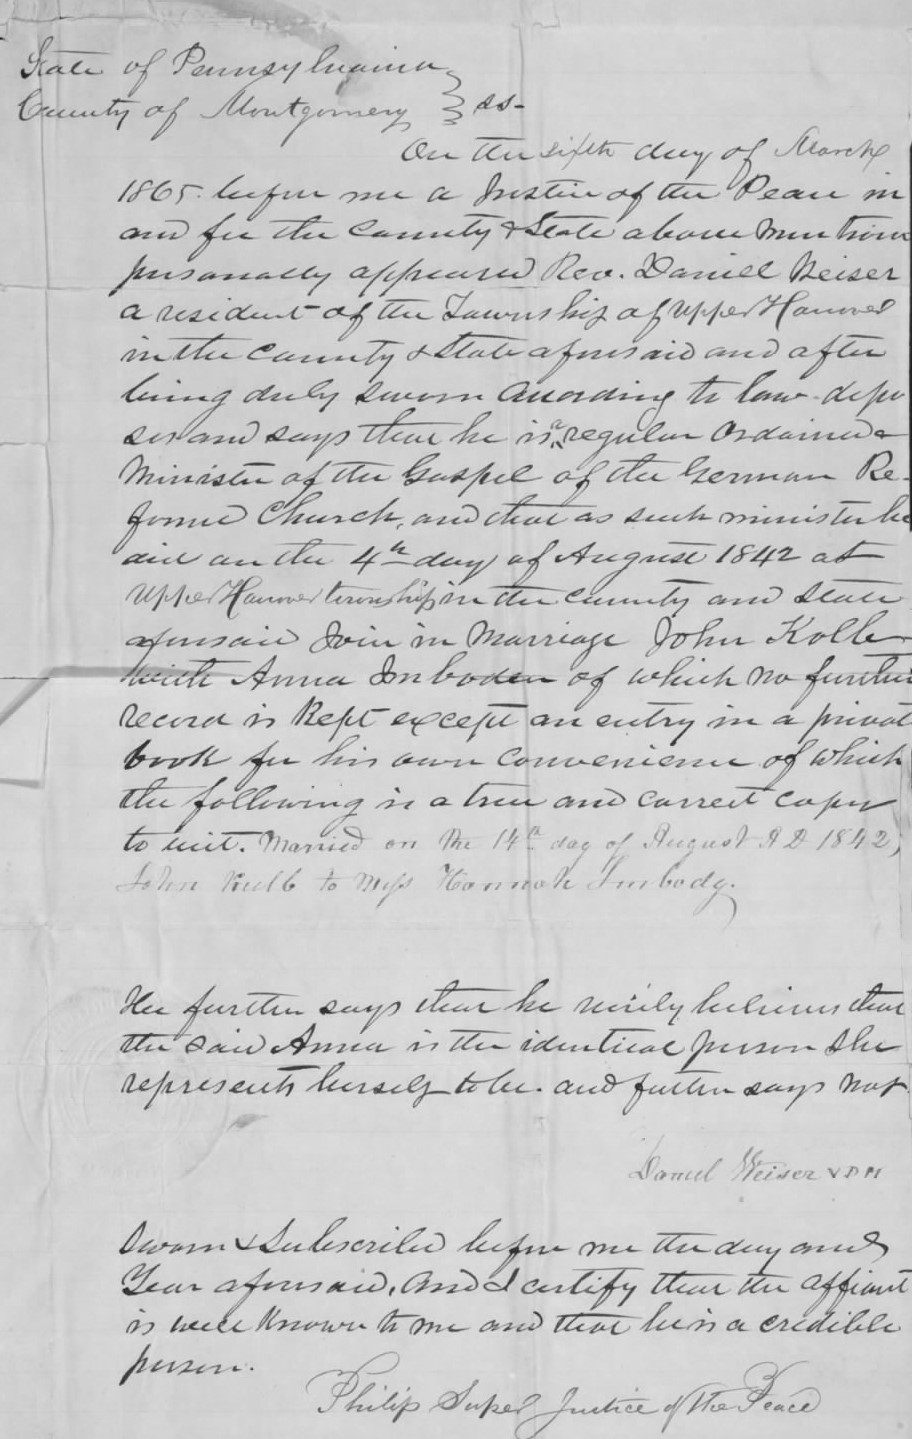 State of Pennsylvania
County of Montgomery } ss-
On the sixth day of March
1865 before me a Justice of the Peace in
and for the County & State above mention
personally appeared Rev. Daniel Weiser
a resident of the Township of Upper Hanover
in the County & State aforesaid and after
being duly sworn according to law depo
ses and says that he is a regular Ordained
Minister of the Gospel of the German Re-
formed Church, and that as such minister he
did on the 4th day of August 1842 at
Upper Hanover township in the County and State
aforesaid Join in Marriage John Kolb
with Anna Imboden of which no further
record is kept except an entry in a privat
book for his own convenience of which
the following is a true and correct copy
to wit. Married on the 14th day of August A D 1842,
John Kulb to Miss Hannah Imbody.
He further says that he verily believes that
the said Anna is the identical person she
represents herself to be. and further says not
Daniel Weiser V D M
Sworn & Subscribed before me the day and
Year aforesaid, And I certify that the affiant
is well known to me and that he is a credible
person.
Philip Super Justice of the Peace